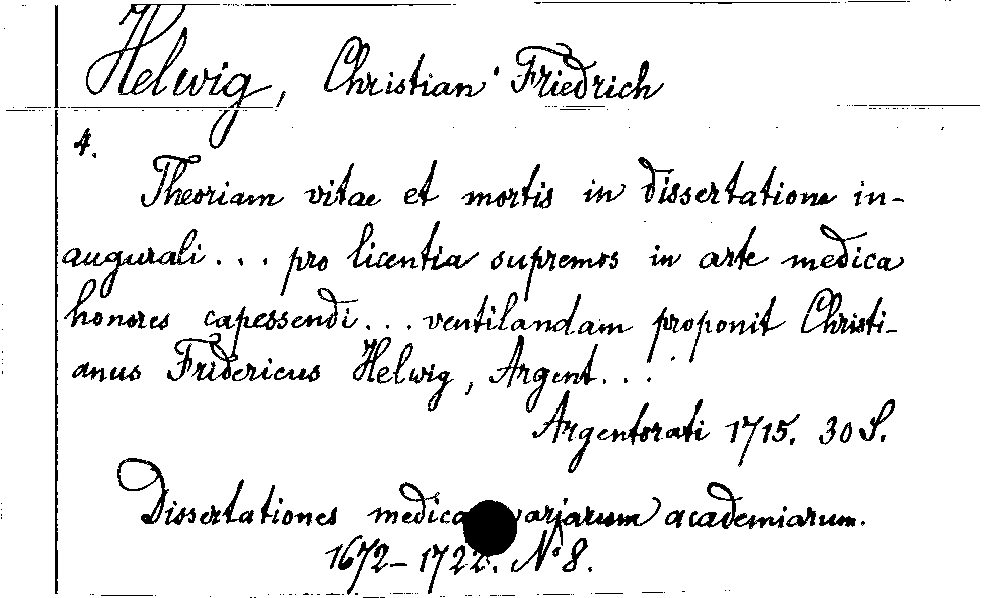 Helwig, Christian Friedrich
4.
Theoriam vitae et mortis in dissertatione in-
augurali... pro licentia supremos in arte medica
honores capessendi... ventilandam proponit Christi-
anus Fridericus Helwig, Argent...
Argentorati 1715. 30 S.
Dissertationes medica variarum academiarum.
1672-1722. No 8.